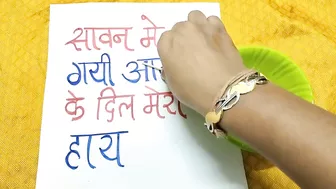 सावन मे
गयी
के दिल मेरा
हाय